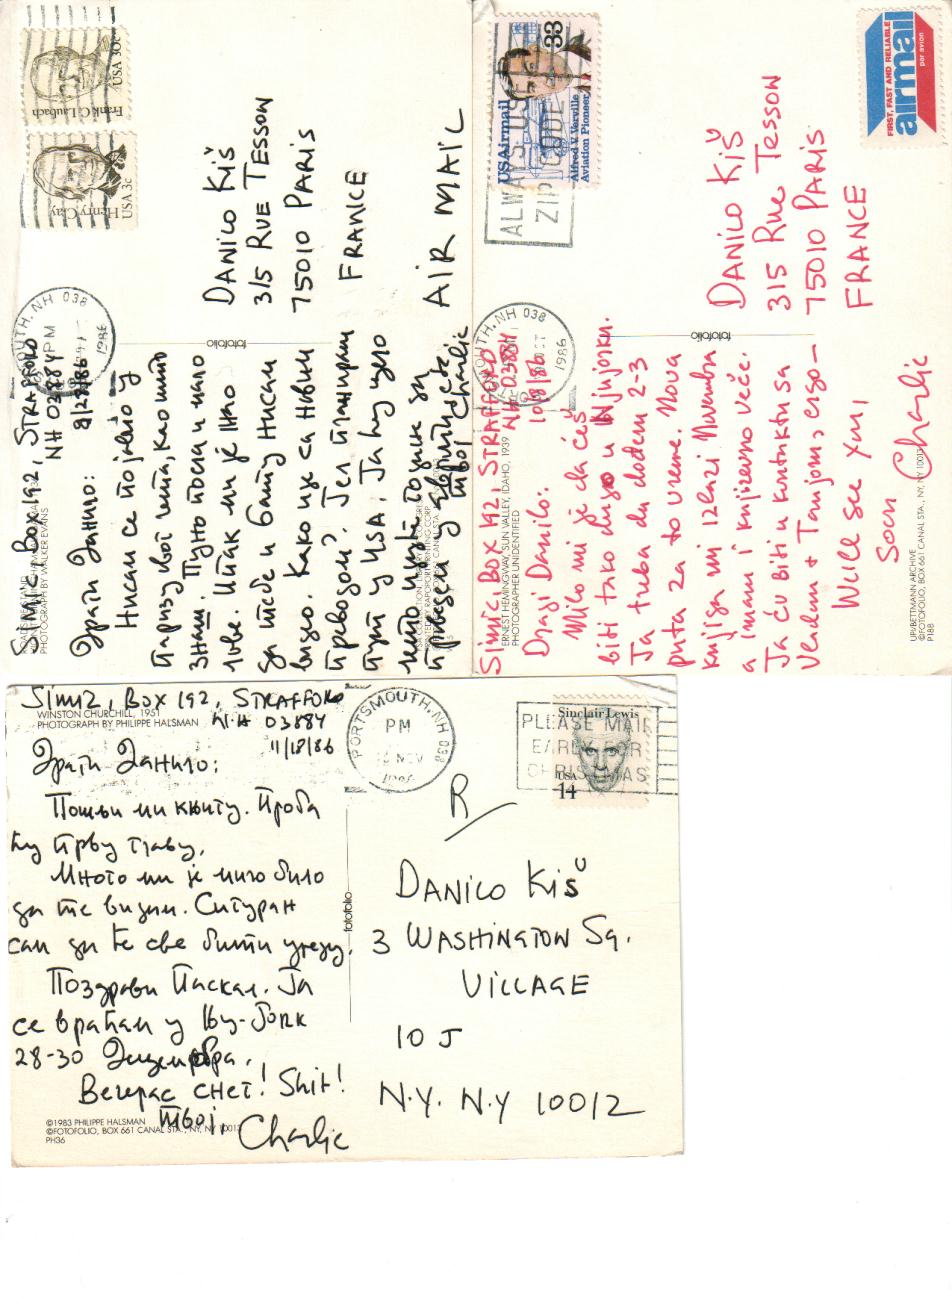 SIMIC, BOX 192, STRAFFORD
NH 03884
8/28/86
Драги Данило:
Нисам се појавио у
Паризу овог лета, као што
знаш. Пуно посла и мало
лове. Ипак ми је жао
да тебе и Башу нисам
видео. Како иде са новим
преводом? Јел планираш
пут у USA. Ја ћу цело
лето идуће године да
проведем у
твој Charlie
PORTSMOUTH, NH 038
PM
1986
Frank C. Laubach
USA 30c
Henry Clay
USA 3c
DANILO KIŠ
315 RUE TESSON
75010 PARIS
FRANCE
AIR MAIL
fotofolio
PHOTOGRAPH BY WALKER EVANS
SIMIC BOX 192, STRAFFORD
NH 03884
10/8/86
Dragi Danilo:
Milo mi je da ćeš
biti tako dugo u Njujorku.
Ja treba da dođem 2-3
puta za to vreme. Nova
knjiga mi izlazi Novembra
a imam i književno veče.
Ja ću biti u kontaktu sa
Vendom + Tanjom, ergo—
Will see you,
soon
Charlie
ERNEST HEMINGWAY, SUN VALLEY, IDAHO, 1939
PHOTOGRAPHER UNIDENTIFIED
UPI/BETTMANN ARCHIVE
©FOTOFOLIO, BOX 661 CANAL STA., NY, NY 10013
P188
fotofolio
PORTSMOUTH, NH 038
OCT
1986
ALWAYS USE
ZIP CODE
USAirmail
33
Alfred V. Verville
Aviation Pioneer
FIRST, FAST AND RELIABLE
airmail
par avion
DANILO KIŠ
315 Rue Tesson
75010 PARIS
FRANCE
SIMIC, BOX 192, STRAFFORD
N.H 03884
11/18/86
WINSTON CHURCHILL, 1951
PHOTOGRAPH BY PHILIPPE HALSMAN
Драги Данило:
Пошљи ми књигу. Проба
ћу прву главу.
Много ми је мило било
да те видим. Сигуран
сам да ће све бити у реду.
Поздрави Паскал. Ја
се враћам у Њу-Јорк
28-30 Децембра.
Вечерас снег! Shit!
Твој,
Charlie
©1983 PHILIPPE HALSMAN
©FOTOFOLIO, BOX 661 CANAL STA., NY, NY 10013
PH36
fotofolio
PORTSMOUTH, NH 038
PM
NOV
1986
PLEASE MAIL
EARLY FOR
CHRISTMAS
Sinclair Lewis
USA
14
R
DANILO KIŠ
3 WASHINGTON SQ.
VILLAGE
10 J
N.Y. N.Y 10012